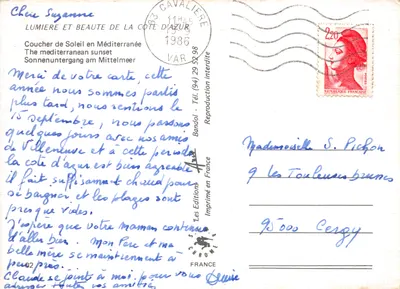 Chère Suzanne
LUMIERE ET BEAUTE DE LA COTE D'AZUR
Coucher de Soleil en Méditerranée
The mediterranean sunset
Sonnenuntergang am Mittelmeer
Merci de votre carte, cette
année nous sommes partis
plus tard, nous rentrons le
15 septembre, nous passons
quelques jours avec nos amis
de Villeneuve et à cette période
la cote d'azur est bien agréable
il fait suffisamment chaud pour
se baigner et les plages sont
presque vides.
J'espère que votre maman continue
d'aller bien. Mon Père et ma
belle mère se maintiennent à
peu près.
Claude se joint à moi pour vous
adresser toutes nos amitiés
Denise
83 CAVALIERE
1986
VAR
Bandol - Tél. (94) 29.52.98
Reproduction interdite
Les Editions
Imprimé en France
FRANCE
2,20
Mademoiselle S. Pichon
9 Les Touleuses brunes
95000 Cergy